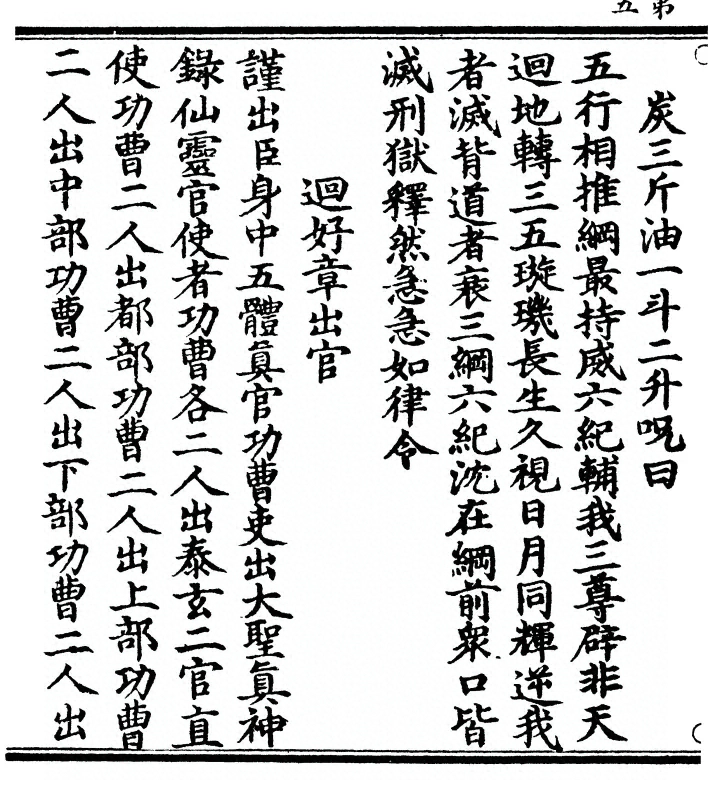 第五
炭三斤油一斗二升呪曰
五行相推綱最持威六紀輔我三尊辟非天
迴地轉三五璇璣長生久視日月同輝逆我
者滅背道者衰三綱六紀沈在綱前衆口皆
滅刑獄釋然急急如律令
迴好章出官
謹出臣身中五體真官功曹吏出大聖真神
錄仙靈官使者功曹各二人出泰玄二官直
使功曹二人出都部功曹二人出上部功曹
二人出中部功曹二人出下部功曹二人出